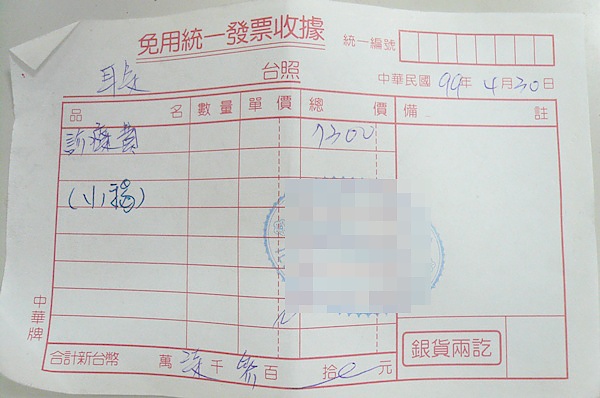 免用統一發票收據
統一編號
台照
中華民國 99年 4月30日
品名 數量 單價 總價 備註
診療費 7300
(小楊)
中華牌
合計新台幣 萬 柒千 叁百 拾 元
銀貨兩訖